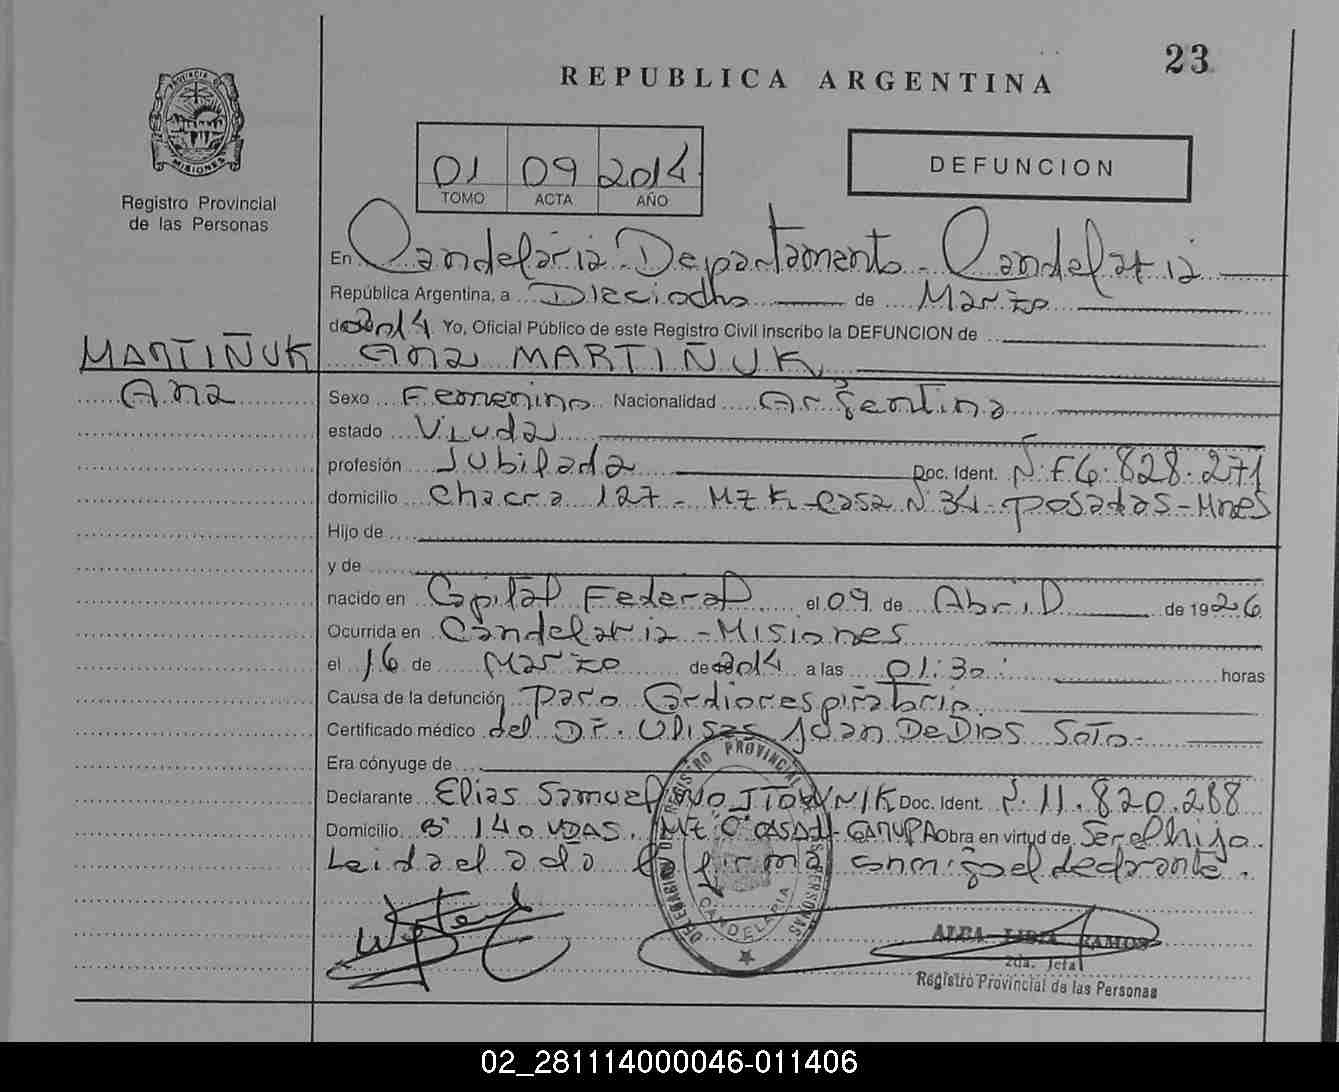 23
REPUBLICA ARGENTINA
PROVINCIA DE
MISIONES
Registro Provincial
de las Personas
01 09 2014
TOMO ACTA AÑO
DEFUNCION
En Candelaria Departamento Candelaria
República Argentina, a Dieciocho de Marzo
de 2014 Yo, Oficial Público de este Registro Civil inscribo la DEFUNCION de
MARTIÑUK Ana MARTIÑUK
Ana Sexo Femenino Nacionalidad Argentina
estado Viuda
profesión Jubilada Doc. Ident. Nº F6.828.271
domicilio Chacra 127 - Mz K - Casa Nº 34 - Posadas - Mnes
Hijo de
y de
nacido en Capital Federal el 09 de Abril de 1926
Ocurrida en Candelaria - Misiones
el 16 de Marzo de 2014 a las 01:30 horas
Causa de la defunción Paro Cardiorespiratorio
Certificado médico del Dr. Ulises Juan De Dios Soto
Era cónyuge de
Declarante Elias Samuel WOJTOWNIK Doc. Ident. Nº 11.820.288
Domicilio Bº 140 VDAS. Mz "C" CASA - GARUPA Obra en virtud de Ser el hijo.
Leida el acta la firma conmigo el declarante.
DELEGACION DEL REGISTRO PROVINCIAL DE LAS PERSONAS
CANDELARIA
ALBA LIDIA RAMOS
2da. Jefa
Registro Provincial de las Personas
02_281114000046-011406